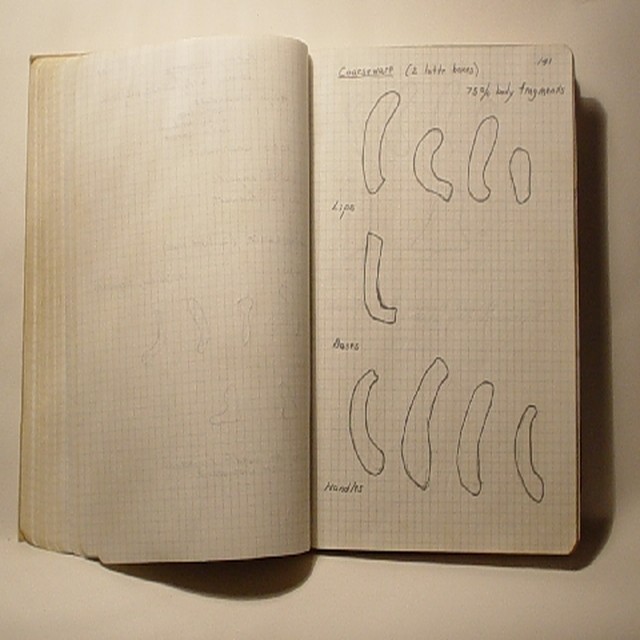 Courseware (2 lotte boxes)
75% body fragments
Lips
Bases
Handles